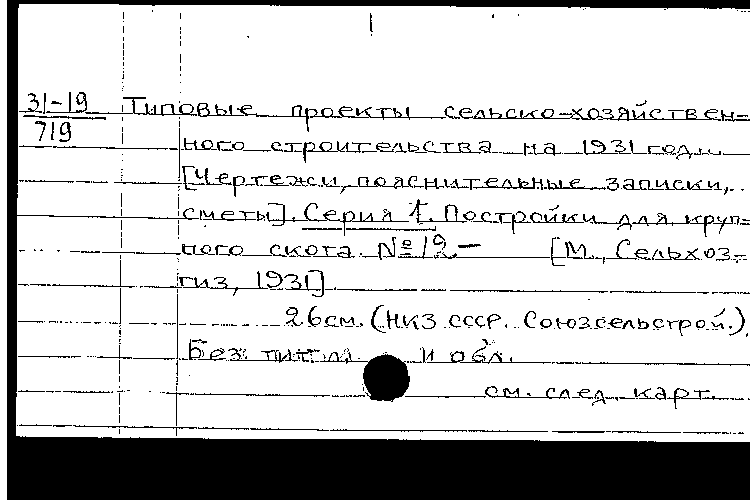 31-19
719
Типовые проекты сельско-хозяйствен=
ного строительства на 1931 год...
[Чертежи, пояснительные записки,..
сметы]. Серия 1. Постройки для круп=
ного скота. №12 — [М., Сельхоз=
гиз, 1931]
26см. (НКЗ СССР. Союзсельстрой.).
Без титула и обл.
см. след. карт.